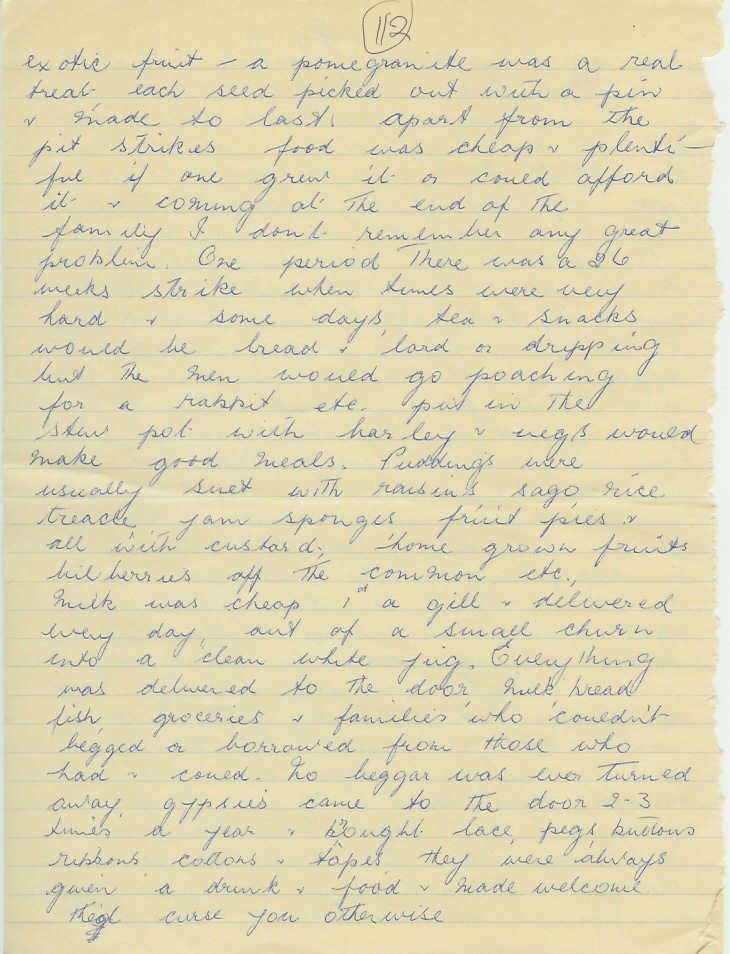 112
exotic fruit — a pomegranite was a real
treat each seed picked out with a pin
& made to last. apart from the
pit strikes food was cheap & plenti-
ful if one grew it or could afford
it & coming at the end of the
family I don't remember any great
problem. One period There was a 26
weeks strike when times were very
hard & some days, tea & snacks
would be bread & lard or dripping
but the men would go poaching
for a rabbit etc. put in the
stew pot with barley & vegs would
make good meals. Puddings were
usually suet with raisins sago rice
treacle jam sponges fruit pies &
all with custard, home grown fruits
bilberries off the common etc.,
Milk was cheap 1d a gill & delivered
every day, out of a small churn
into a clean white jug. Everything
was delivered to the door milk bread
fish groceries & families who couldn't
begged or borrowed from those who
had & could. No beggar was ever turned
away, gypsies came to the door 2-3
times a year & bought lace, pegs buttons
ribbons cottons & tapes they were always
given a drink & food & made welcome.
They'd curse you otherwise